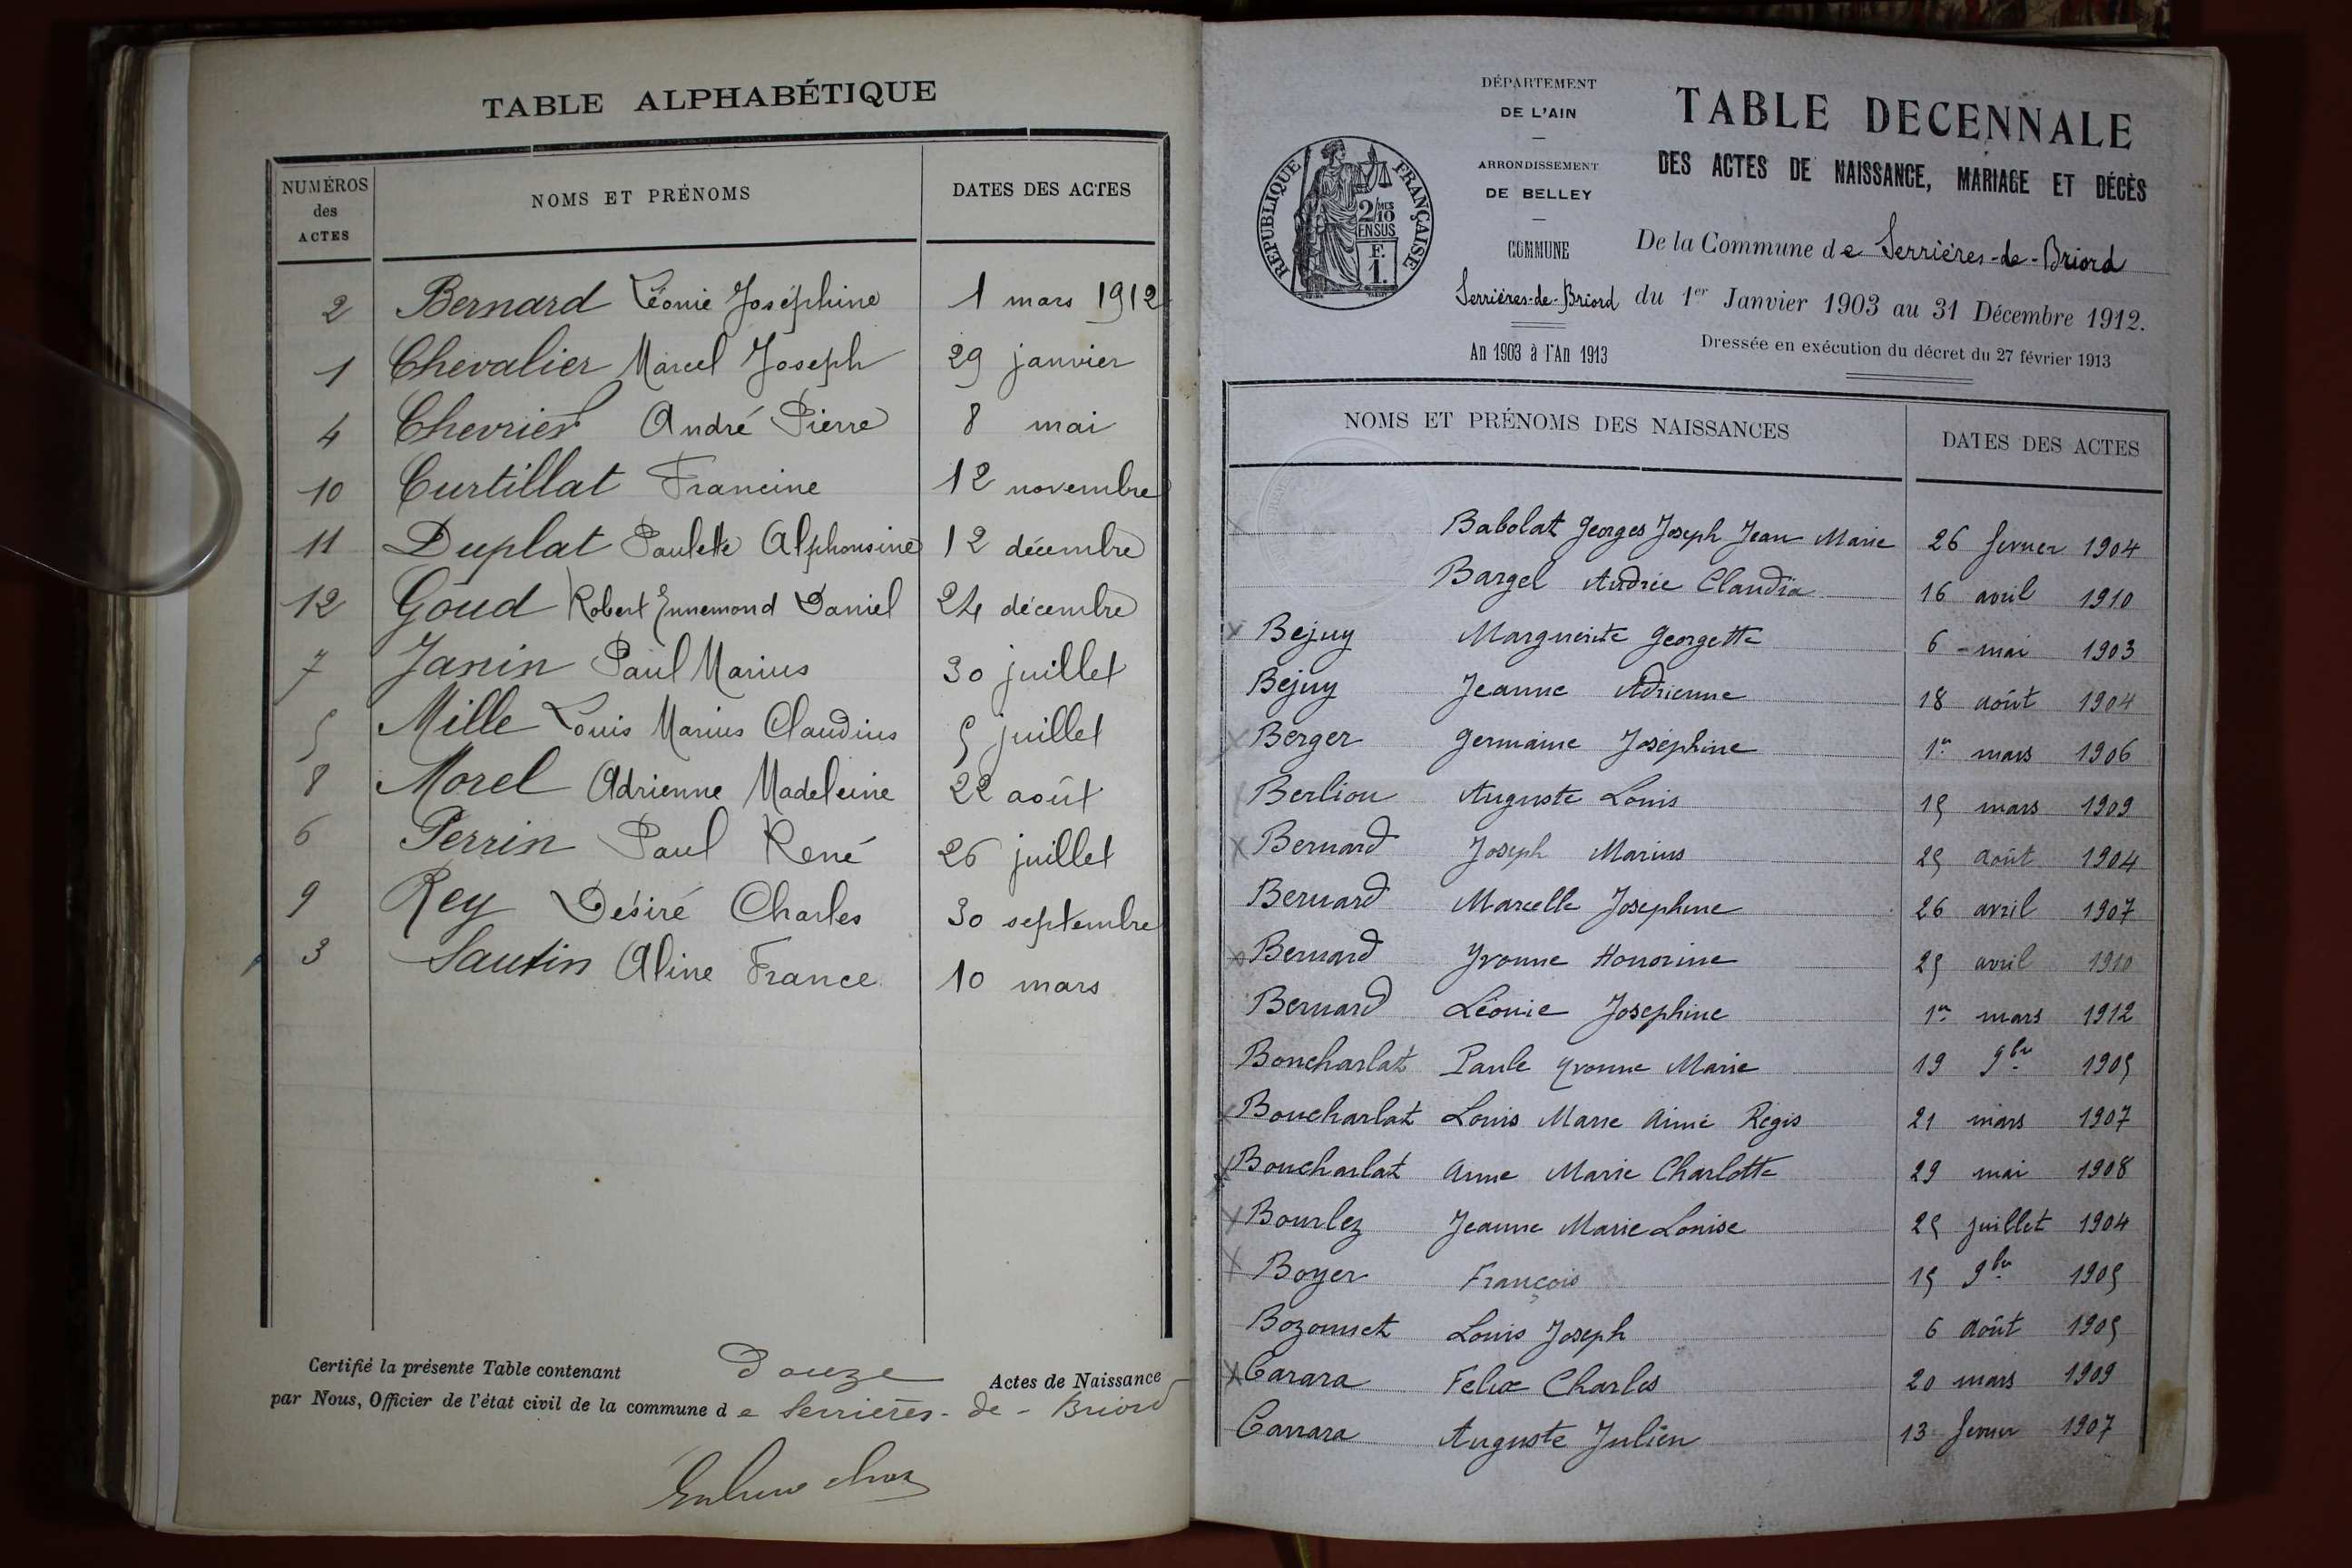 TABLE ALPHABÉTIQUE
NUMÉROS des ACTES NOMS ET PRÉNOMS DATES DES ACTES
2 Bernard Léonie Joséphine 1 mars 1912
1 Chevalier Marcel Joseph 29 janvier
4 Chevrier André Pierre 8 mai
10 Curtillat Francine 12 novembre
11 Duplat Paulette Alphonsine 12 décembre
12 Goud Robert Ennemond Daniel 24 décembre
7 Janin Paul Marius 30 juillet
5 Mille Louis Marius Claudius 5 juillet
8 Morel Adrienne Madeleine 22 août
6 Perrin Paul René 26 juillet
9 Rey Désiré Charles 30 septembre
3 Sautin Aline France 10 mars
Certifié la présente Table contenant Douze Actes de Naissance
par Nous, Officier de l'état civil de la commune de Serrières-de-Briord
DÉPARTEMENT
DE L'AIN
ARRONDISSEMENT
DE BELLEY
COMMUNE
Serrières-de-Briord
An 1903 à l'An 1913
RÉPUBLIQUE FRANÇAISE
2/10 MES
EN SUS
F.
1.
TABLE DECENNALE
DES ACTES DE NAISSANCE, MARIAGE ET DÉCÈS
De la Commune de Serrières-de-Briord
du 1er Janvier 1903 au 31 Décembre 1912.
Dressée en exécution du décret du 27 février 1913
NOMS ET PRÉNOMS DES NAISSANCES DATES DES ACTES
x Babolat Georges Joseph Jean Marie 26 fevrier 1904
Bargel Andrée Claudia 16 avril 1910
x Bejuy Marguerite Georgette 6 mai 1903
Bejuy Jeanne Adrienne 18 août 1904
x Berger Germaine Joséphine 1er mars 1906
Berliou Auguste Louis 15 mars 1909
x Bernard Joseph Marius 25 août 1904
Bernard Marcelle Josephine 26 avril 1907
x Bernard Yvonne Honorine 25 avril 1910
Bernard Léonie Josephine 1er mars 1912
Boucharlat Paule Yvonne Marie 19 9bre 1905
x Boucharlat Louis Marie Aimé Régis 21 mars 1907
x Boucharlat Anne Marie Charlotte 29 mai 1908
x Bourlez Jeanne Marie Louise 25 juillet 1904
x Boyer François 15 9bre 1905
Bozonnet Louis Joseph 6 août 1905
x Carara Felix Charles 20 mars 1909
Carrara Auguste Julien 13 fevrier 1907